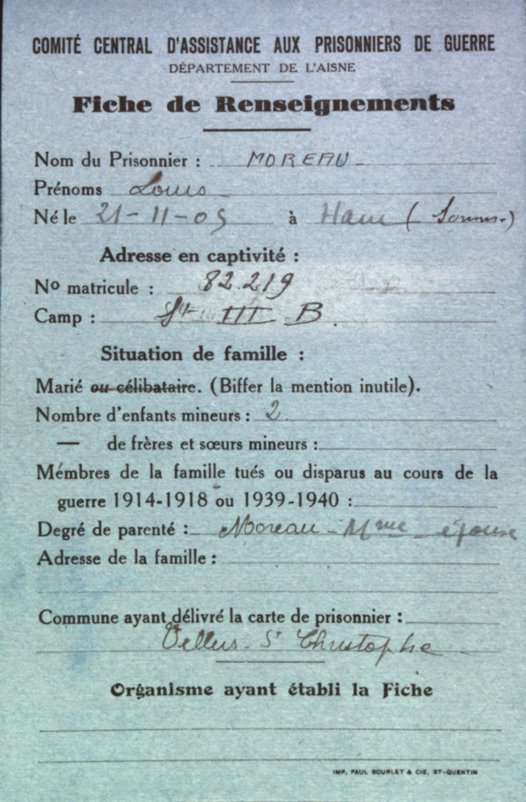 COMITÉ CENTRAL D'ASSISTANCE AUX PRISONNIERS DE GUERRE
DÉPARTEMENT DE L'AISNE
Fiche de Renseignements
Nom du Prisonnier : MOREAU
Prénoms Louis
Né le 21-11-05 à Ham (Somme)
Adresse en captivité :
No matricule : 82.219
Camp : III B
Situation de famille :
Marié ou célibataire. (Biffer la mention inutile).
Nombre d'enfants mineurs : 2
— de frères et sœurs mineurs :
Mémbres de la famille tués ou disparus au cours de la
guerre 1914-1918 ou 1939-1940 :
Degré de parenté : Moreau - Mme épouse
Adresse de la famille :
Commune ayant délivré la carte de prisonnier :
St Christophe
Organisme ayant établi la Fiche
IMP. PAUL BOURLET & CIE, ST-QUENTIN